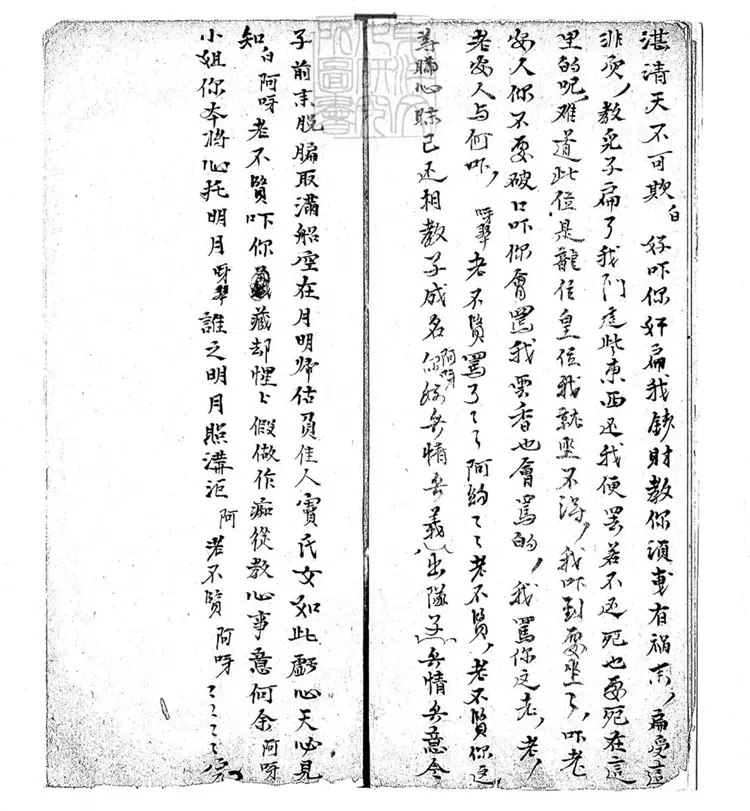 湛清天不可欺 白 好吓你奸扁我鈔財教你須叓有禍來，扁受這
非災，教兒子扁了我們這些東西还我便罢若不还死也要死在這
里的呢，难道此位是龍位皇位我就坐不得，我吓到要坐了，吓老
安人你不要破口吓你會罵我雲香也會罵的，我罵你这老，老，
老安人与何吓，呀罪老不賢罵了了了阿約了了老不賢，老不賢你这
昧己还相教子成名阿呀你好無情無義出隊子無情無意今
子前來脱騙取滿船空在月明歸估負佳人竇氏女如此虧心天必見
知白阿呀老不賢吓你藏却惺卜假做作痴從教心事意何余阿呀
小姐你本將心托明月呀罪誰之明月照溝洰阿老不賢阿呀了了了了